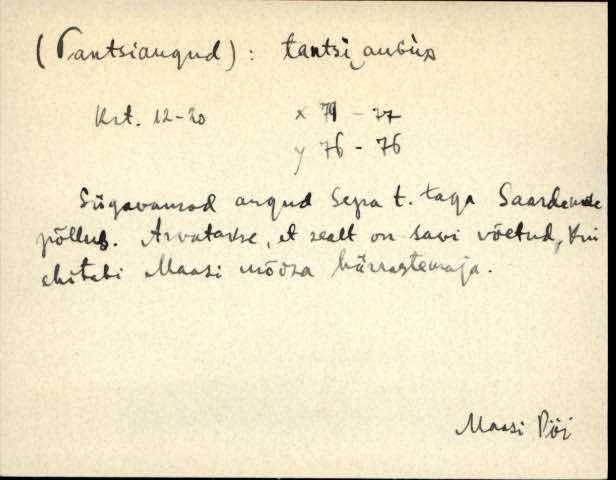 (Tantsiaugud): tantsi͜auɢùᴅ
Krt. 12-20 x 79 - 77
y 76 - 76
Sügavamad augud Sepa t. taga Saardemäe
põllus. Arvatakse, et sealt on savi võetud, kui
ehitati Maasi mõisa härrastemaja.
Maasi Pöi